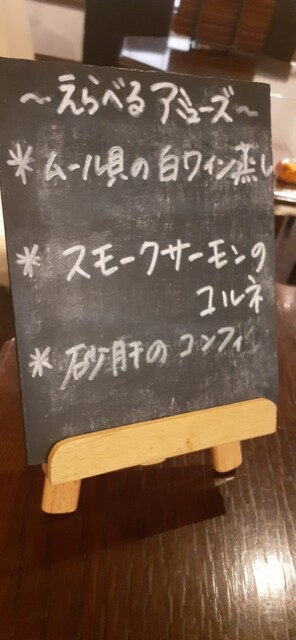 ～えらべるアミューズ～
＊ムール貝の白ワイン蒸し
＊スモークサーモンの
コルネ
＊砂肝のコンフィ